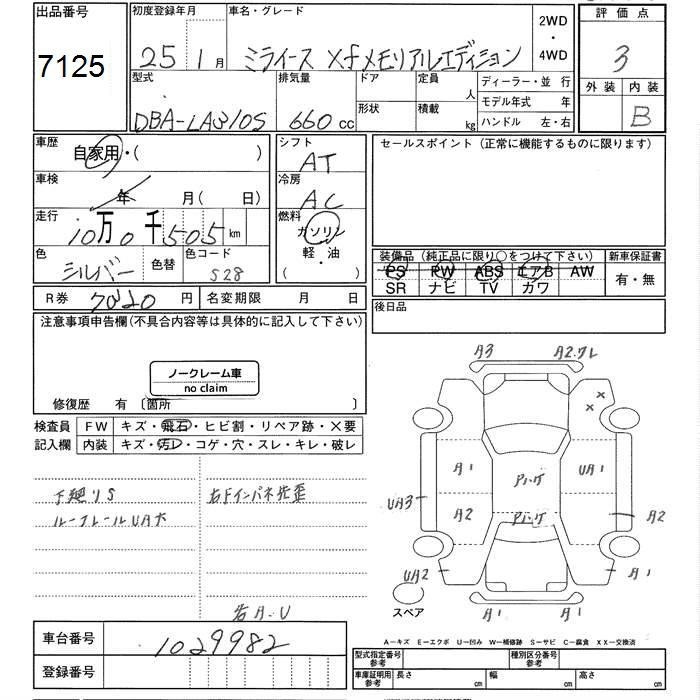 出品番号
7125
初度登録年月
25 1月
車名・グレード
ミライース Xfメモリアルエディション
2WD
・
4WD
評価点
3
外装 内装
B
型式
DBA-LA310S
排気量
660 cc
ドア
形状
定員
人
積載
kg
ディーラー・並行
モデル年式 年
ハンドル 左・右
車歴
自家用・( )
車検
年 月( 日)
走行
10万0千505km
色
シルバー
色替
色コード
S28
シフト
AT
冷房
AC
燃料
ガソリン
軽・油
( )
セールスポイント(正常に機能するものに限ります)
装備品(純正品に限り○をつけて下さい)
PS PW ABS エアB AW
SR ナビ TV カワ
新車保証書
有・無
R券 7040円
名変期限 月 日
後日品
注意事項申告欄(不具合内容等は具体的に記入して下さい)
ノークレーム車
no claim
修復歴 有〔箇所 〕
検査員
記入欄
FW キズ・飛石・ヒビ割・リペア跡・×要
内装 キズ・汚レ・コゲ・穴・スレ・キレ・破レ
下廻りS
ルーフレールUA大
右Fインパネ先歪
右A.U
A3
A2.ワレ
× ×
A1
アハゲ
UA1
UA3
A2
アハゲ
A2
UA2
A1
A1
A1
スペア
A−キズ E−エクボ U−凹み W−補修跡 S−サビ C−腐食 XX−交換済
車台番号
1029982
登録番号
型式指定番号
参考
種別区分番号
参考
車庫証明用
参考
長さ cm
幅 cm
高さ cm